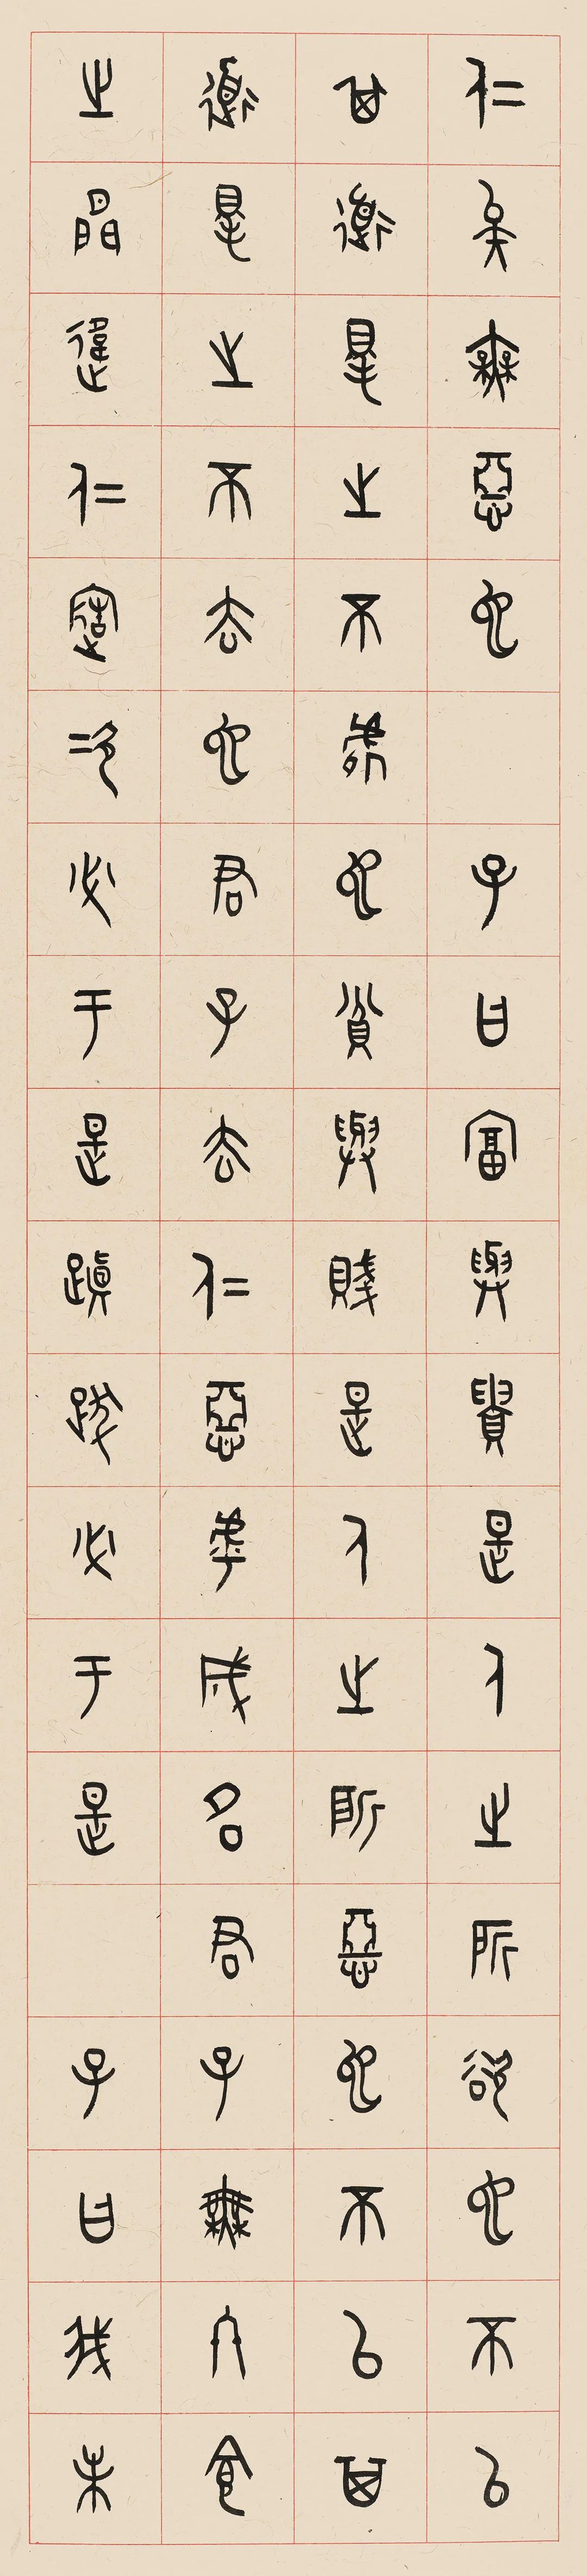 仁矣無惡也　子曰富與貴是人之所欲也不以
其道得之不處也貧與賤是人之所惡也不以其
道得之不去也君子去仁惡乎成名君子無終食
之間違仁造次必于是蹎跋必于是　子曰我未